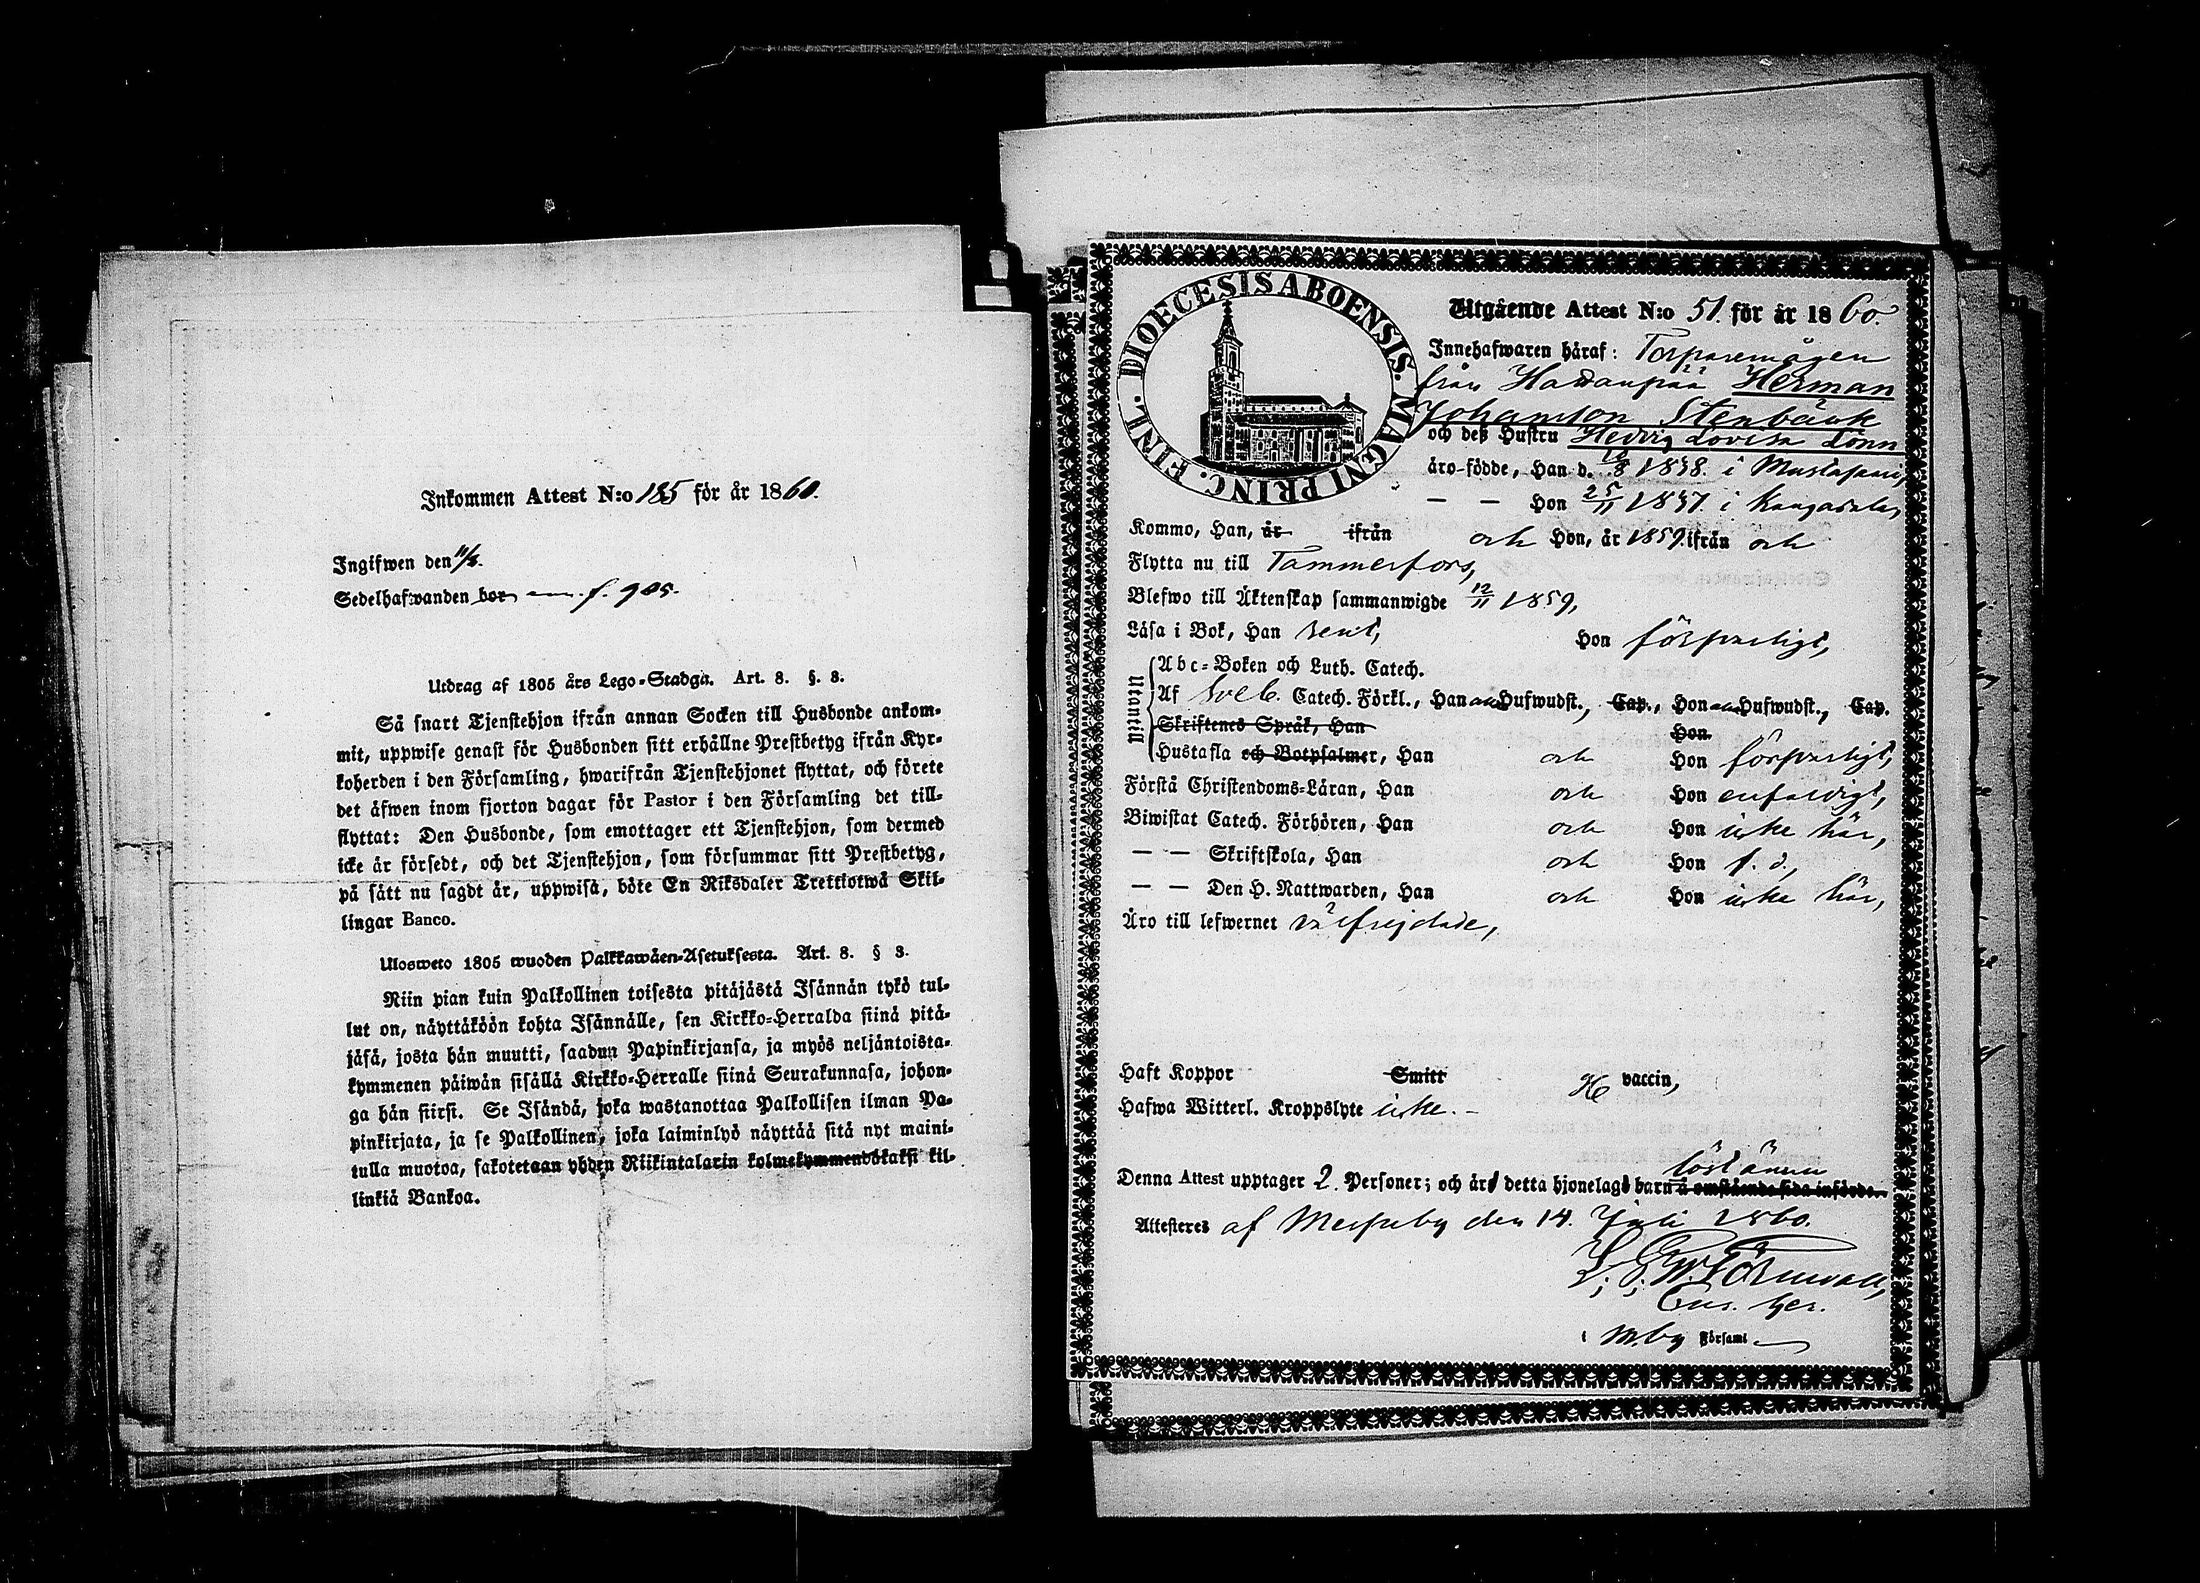 Inkommen Attest N:o 185 för år 1860.
Ingifwen den 11/8.
Sedelhafwanden bor f. 905.
Utdrag af 1805 års Lego-Stadga. Art. 8. §. 3.
Så snart Tjenstehjon ifrån annan Socken till Husbonde ankom-
mit, uppwise genast för Husbonden sitt erhållne Prestbetyg ifrån Kyr-
koherden i den Församling, hwarifrån Tjenstehjonet flyttat, och förete
det äfwen inom fjorton dagar för Pastor i den Församling det till-
flyttat: Den Husbonde, som emottager ett Tjenstehjon, som dermed
icke är försedt, och det Tjenstehjon, som försummar sitt Prestbetyg,
på sätt nu sagdt är, uppwisa, böte En Riksdaler Trettiotwå Skil-
lingar Banco.
Ulosweto 1805 wuoden Palkkawäen-Asetuksesta. Art. 8. § 3.
Niin pian kuin Palkollinen toisesta pitäjästä Isännän tykö tul-
lut on, näyttäköön kohta Isännälle, sen Kirkko-Herralda siinä pitä-
jäsä, josta hän muutti, saadun Papinkirjansa, ja myös neljäntoista-
kymmenen päiwän sisällä Kirkko-Herralle siinä Seurakunnasa, johon-
ga hän siirsi. Se Isändä, joka wastanottaa Palkollisen ilman Pa-
pinkirjata, ja se Palkollinen, joka laiminlyö näyttää sitä nyt maini-
tulla muotoa, sakotetaan yhden Riikintalarin kolmekymmendäkaksi kil-
linkiä Bankoa.
DIOECESIS ABOENSIS. MAGNI PRINC. FINL.
Utgående Attest N:o 51. för år 1860.
Innehafwaren häraf: Torparemågen
från Herman
Johansson Stenbäck
och deß Hustru Hedvig Lovisa Lönn
äro födde, Han d. 18/8 1838. i Mustasaari,
— — Hon 25/11 1837. i Kangasala,
Kommo, Han, år ifrån och Hon, år 1859. ifrån och
Flytta nu till Tammerfors,
Blefwo till Äktenskap sammanwigde 12/11 1859,
Läsa i Bok, Han rent, Hon förswarligt,
Utantill
Abc-Boken och Luth. Catech.
Af Sveb. Catech. Förkl., Han alla Hufwudst., Cap., Hon alla Hufwudst., Cap.
Skriftenes Språk, Han Hon.
Hustafla och Botpsalmer, Han och Hon förswarligt,
Förstå Christendoms-Läran, Han och Hon enfaldigt,
Biwistat Catech. Förhören, Han och Hon icke här,
— — Skriftskola, Han och Hon f. d.,
— — Den H. Nattwarden, Han och Hon icke här,
Äro till lefwernet välfrejdade,
Haft Koppor Smitt vaccin,
Hafwa Witterl. Kroppslyte icke. –
löst ännu
Denna Attest upptager 2. Personer; och äro detta hjonelags barn å omstående sida införde.
Attesteres af Messuby den 14. Juli 1860.
i M:by Församl